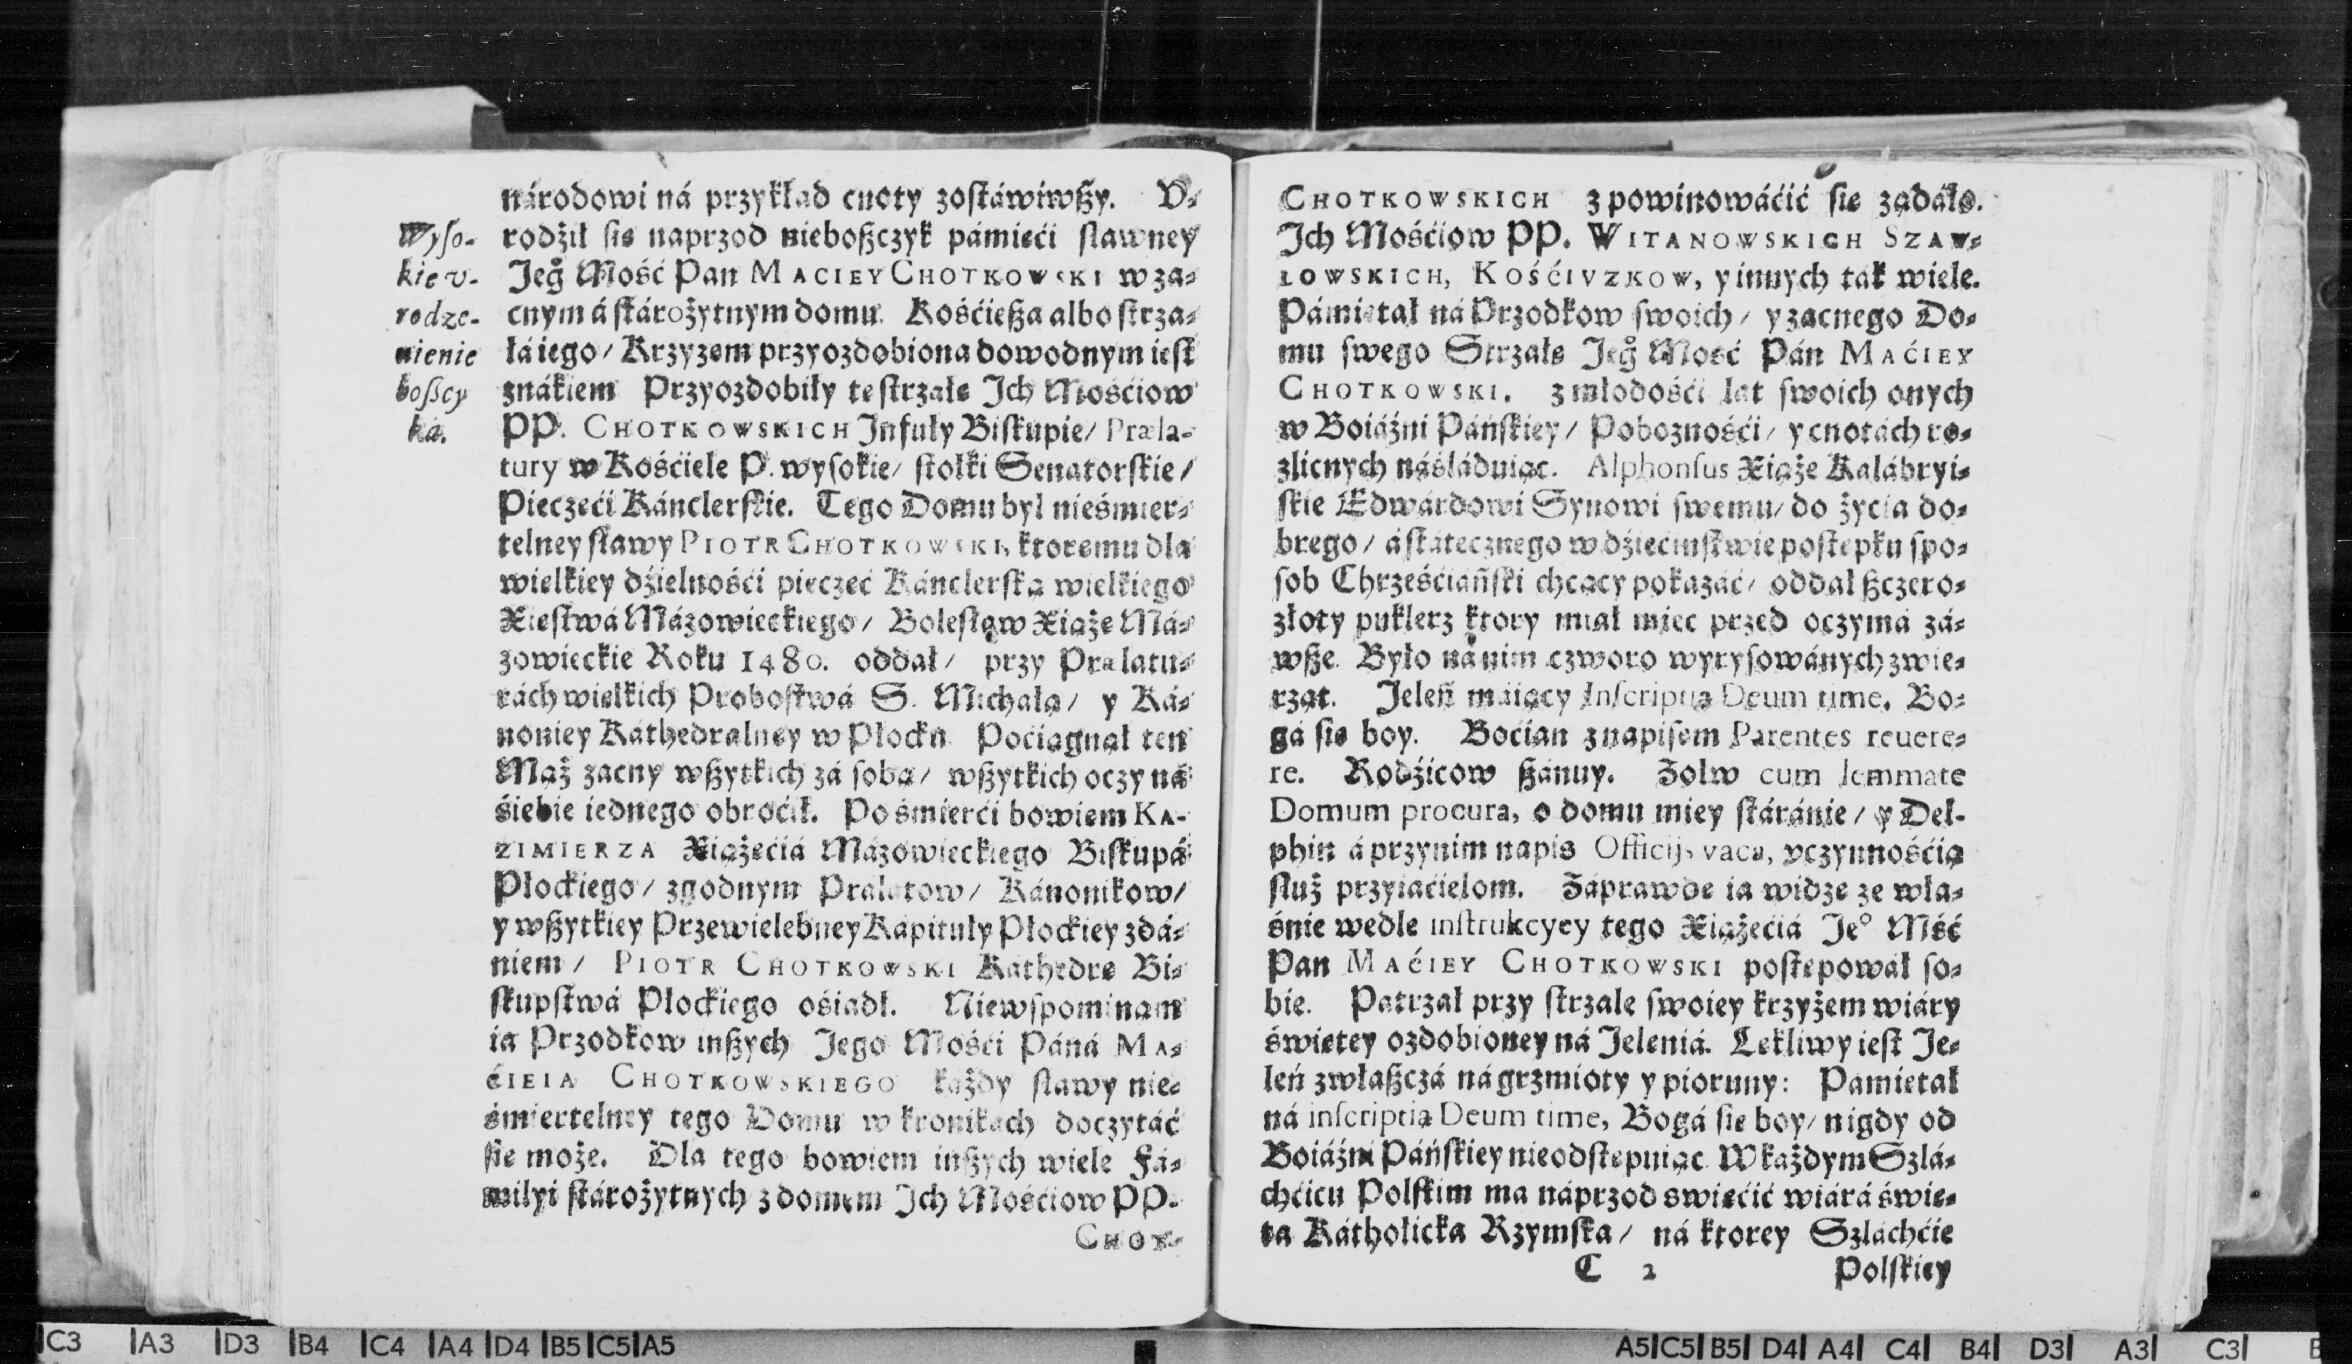 národowi ná przykład cnoty zostáwiwszy. V-
Wyso-
kie v-
rodze-
nienie
boszcy
ká.
rodźił sie naprzod nieboszczyk pámieći sławney
Jeg° Mość Pan MACIEY CHOTKOWSKI w za-
cnym á stárożytnym domu. Kośćiesza albo strza-
łá iego / Krzyzem przyozdobiona dowodnym iest
znákiem Przyozdobiły te strzałe Jch Mośćiow
PP. CHOTKOWSKICH Jnfuły Biskupie / Præla-
tury w Kośćiele P. wysokie / stołki Senatorskie /
Pieczeći Kánclerskie. Tego Domu był nieśmier-
telney sławy PIOTR CHOTKOWSKI, ktoremu dla
wielkiey dźielnośći pieczeć Kánclerska wielkiego
Xiestwá Mázowieckiego / Bolesław Xiąże Má-
zowieckie Roku 1480. oddał / przy Prælatu-
rách wielkich Probostwá S. Michała / y Ká-
noniey Káthedralney w Płocku Poćiągnął ten
Mąż zacny wszytkich zá sobą / wszytkich oczy ná
śiebie iednego obroćił. Po śmierći bowiem KA-
ZIMIERZA Xiążećiá Mázowieckiego Biskupá
Płockiego / zgodnym Prałatow / Kánonikow /
y wszytkiey Przewielebney Kapituły Płockiey zdá-
niem / PIOTR CHOTKOWSKI Káthedre Bi-
skupstwá Płockiego ośiadł. Niewspominam
ia Przodkow inszych Jego Mośći Páná MA-
ĆIEIA CHOTKOWSKIEGO każdy sławy nie-
śmiertelney tego Domu w kronikach doczytáć
sie może. Dla tego bowiem inszych wiele Fá-
milyi stárożytnych z domem Jch Mośćiow PP.
CHOT-
CHOTKOWSKICH zpowinowáćić sie żądáło.
Jch Mośćiow PP. WITANOWSKICH SZAW-
ŁOWSKICH, KOŚĆIVZKOW, y innych ták wiele.
Pámietał ná Przodkow swoich / y zacnego Do-
mu swego Strzałe Jeg° Mość Pán MAĆIEY
CHOTKOWSKI. z młodośći lat swoich onych
w Boiáźni Páńskiey / Pobożnośći / y cnotách ro-
zlicnych náśláduiąc. Alphonsus Xiąże Kalábryi-
skie Edwárdowi Synowi swemu / do życia do-
brego / á státecznego w dźiećinstwie postepku spo-
sob Chrześćiáński chcący pokazáć / oddał szczero-
złoty puklerz ktory miał miec przed oczyma zá-
wsze. Było ná nim czworo wyrysowánych zwie-
rząt. Jeleń máiący Inscriptią Deum time, Bo-
gá sie boy. Boćian z napisem Parentes reuere-
re. Rodźicow szánuy. Zołw cum lemmate
Domum procura, o domu miey stáránie / y Del-
phin á przynim napis Officijs vaca, vczynnośćią
służ przyiaćielom. Záprawde ia widze ze wła-
śnie wedle instrukcyey tego Xiążećiá Je° Mść
Pan MAĆIEY CHOTKOWSKI postepował so-
bie. Patrzał przy strzale swoiey krzyżem wiáry
świetey ozdobioney ná Jeleniá. Lekliwy iest Je-
leń zwłaszczá ná grzmioty y pioruny: Pamietał
ná inscriptią Deum time, Bogá sie boy / nigdy od
Boiáźni Páńskiey nieodstepuiąc. W káżdym Szlá-
chćicu Polskim ma náprzod swiećić wiárá świe-
ta Kátholicka Rzymska / ná ktorey Szláchćie
C 2
Polskiey
C3 A3 D3 B4 C4 A4 D4 B5 C5 A5
A5 C5 B5 D4 A4 C4 B4 D3 A3 C3